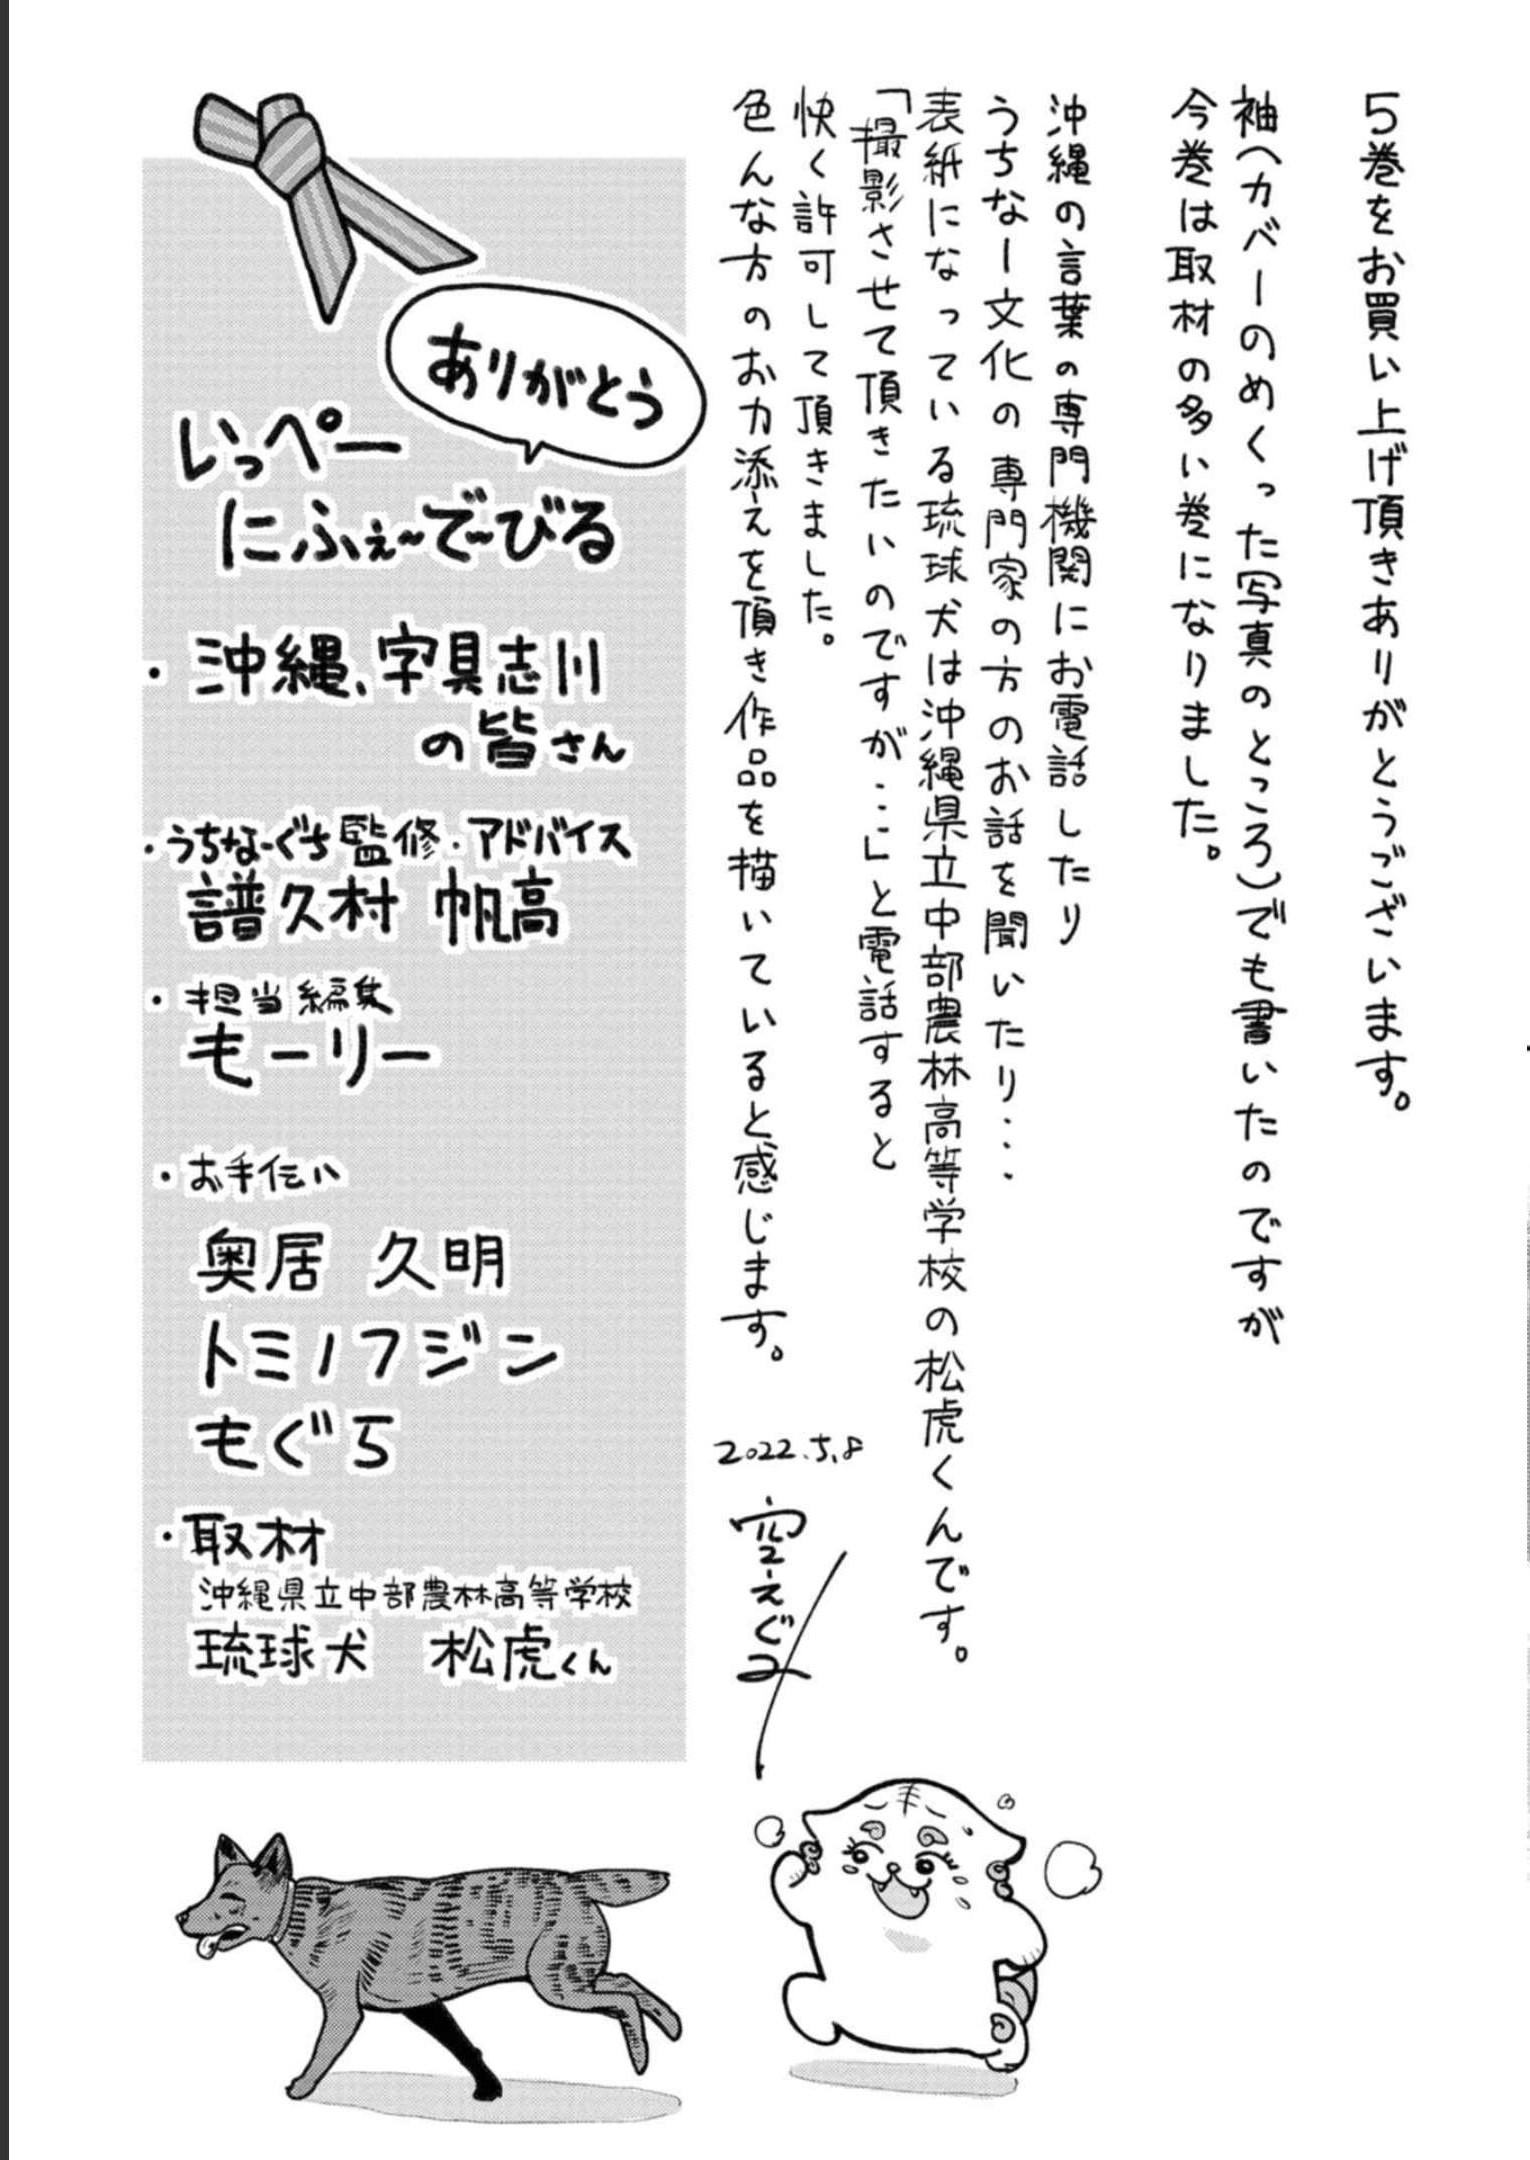 5巻をお買い上げ頂きありがとうございます。
袖(カバーのめくった写真のところ)でも書いたのですが
今巻は取材の多い巻になりました。
沖縄の言葉の専門機関にお電話したり
うちなー文化の専門家の方のお話を聞いたり…
表紙になっている琉球犬は沖縄県立中部農林高等学校の松虎くんです。
「撮影させて頂きたいのですが…」と電話すると
快く許可して頂きました。
色んな方のお力添えを頂き作品を描いていると感じます。
2022.5.8
空えぐみ
ありがとう
いっぺー
にふぇ〜で〜びる
・沖縄、字具志川
の皆さん
・うちなーぐち監修・アドバイス
譜久村 帆高
・担当編集
もーリー
・お手伝い
奥居 久明
トミノフジン
もぐち
・取材
沖縄県立中部農林高等学校
琉球犬 松虎くん